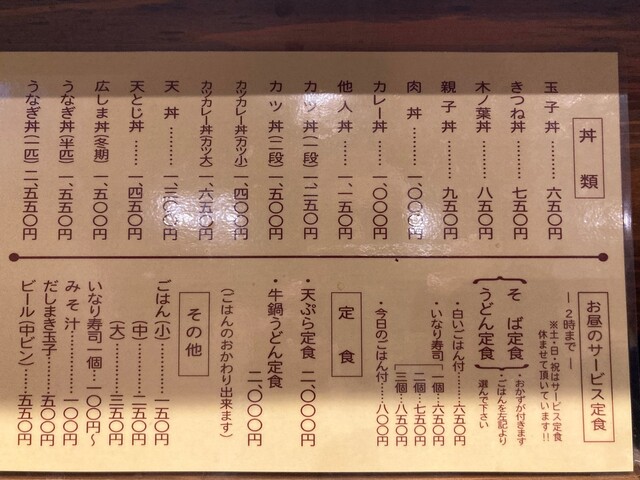 丼類
玉子丼……六五〇円
きつね丼……七五〇円
木ノ葉丼……八五〇円
親子丼……九五〇円
肉丼……一、〇〇〇円
カレー丼……一、〇〇〇円
他人丼……一、一五〇円
カツ丼(一段)一、二五〇円
カツ丼(二段)一、五〇〇円
カツカレー丼(カツ小)一、四〇〇円
カツカレー丼(カツ大)一、六五〇円
天丼……一、三〇〇円
天とじ丼……一、四五〇円
広しま丼(冬期)一、五〇〇円
うなぎ丼(半匹)一、五五〇円
うなぎ丼(一匹)二、五五〇円
お昼のサービス定食
―2時まで―
※土・日・祝はサービス定食
休ませて頂いています!!
そば定食
うどん定食
・おかずが付きます
・ごはんを左記より
選んで下さい
・白いごはん付……六五〇円
・いなり寿司 一個…六五〇円
二個…七五〇円
三個…八五〇円
・今日のごはん付……八〇〇円
定食
・天ぷら定食 二、〇〇〇円
・牛鍋うどん定食
二、〇〇〇円
(ごはんのおかわり出来ます)
その他
ごはん(小)…………一五〇円
(中)…………二五〇円
(大)…………三五〇円
いなり寿司一個…一〇〇円~
みそ汁…………一〇〇円
だしまき玉子……五〇〇円
ビール(中ビン)…五五〇円